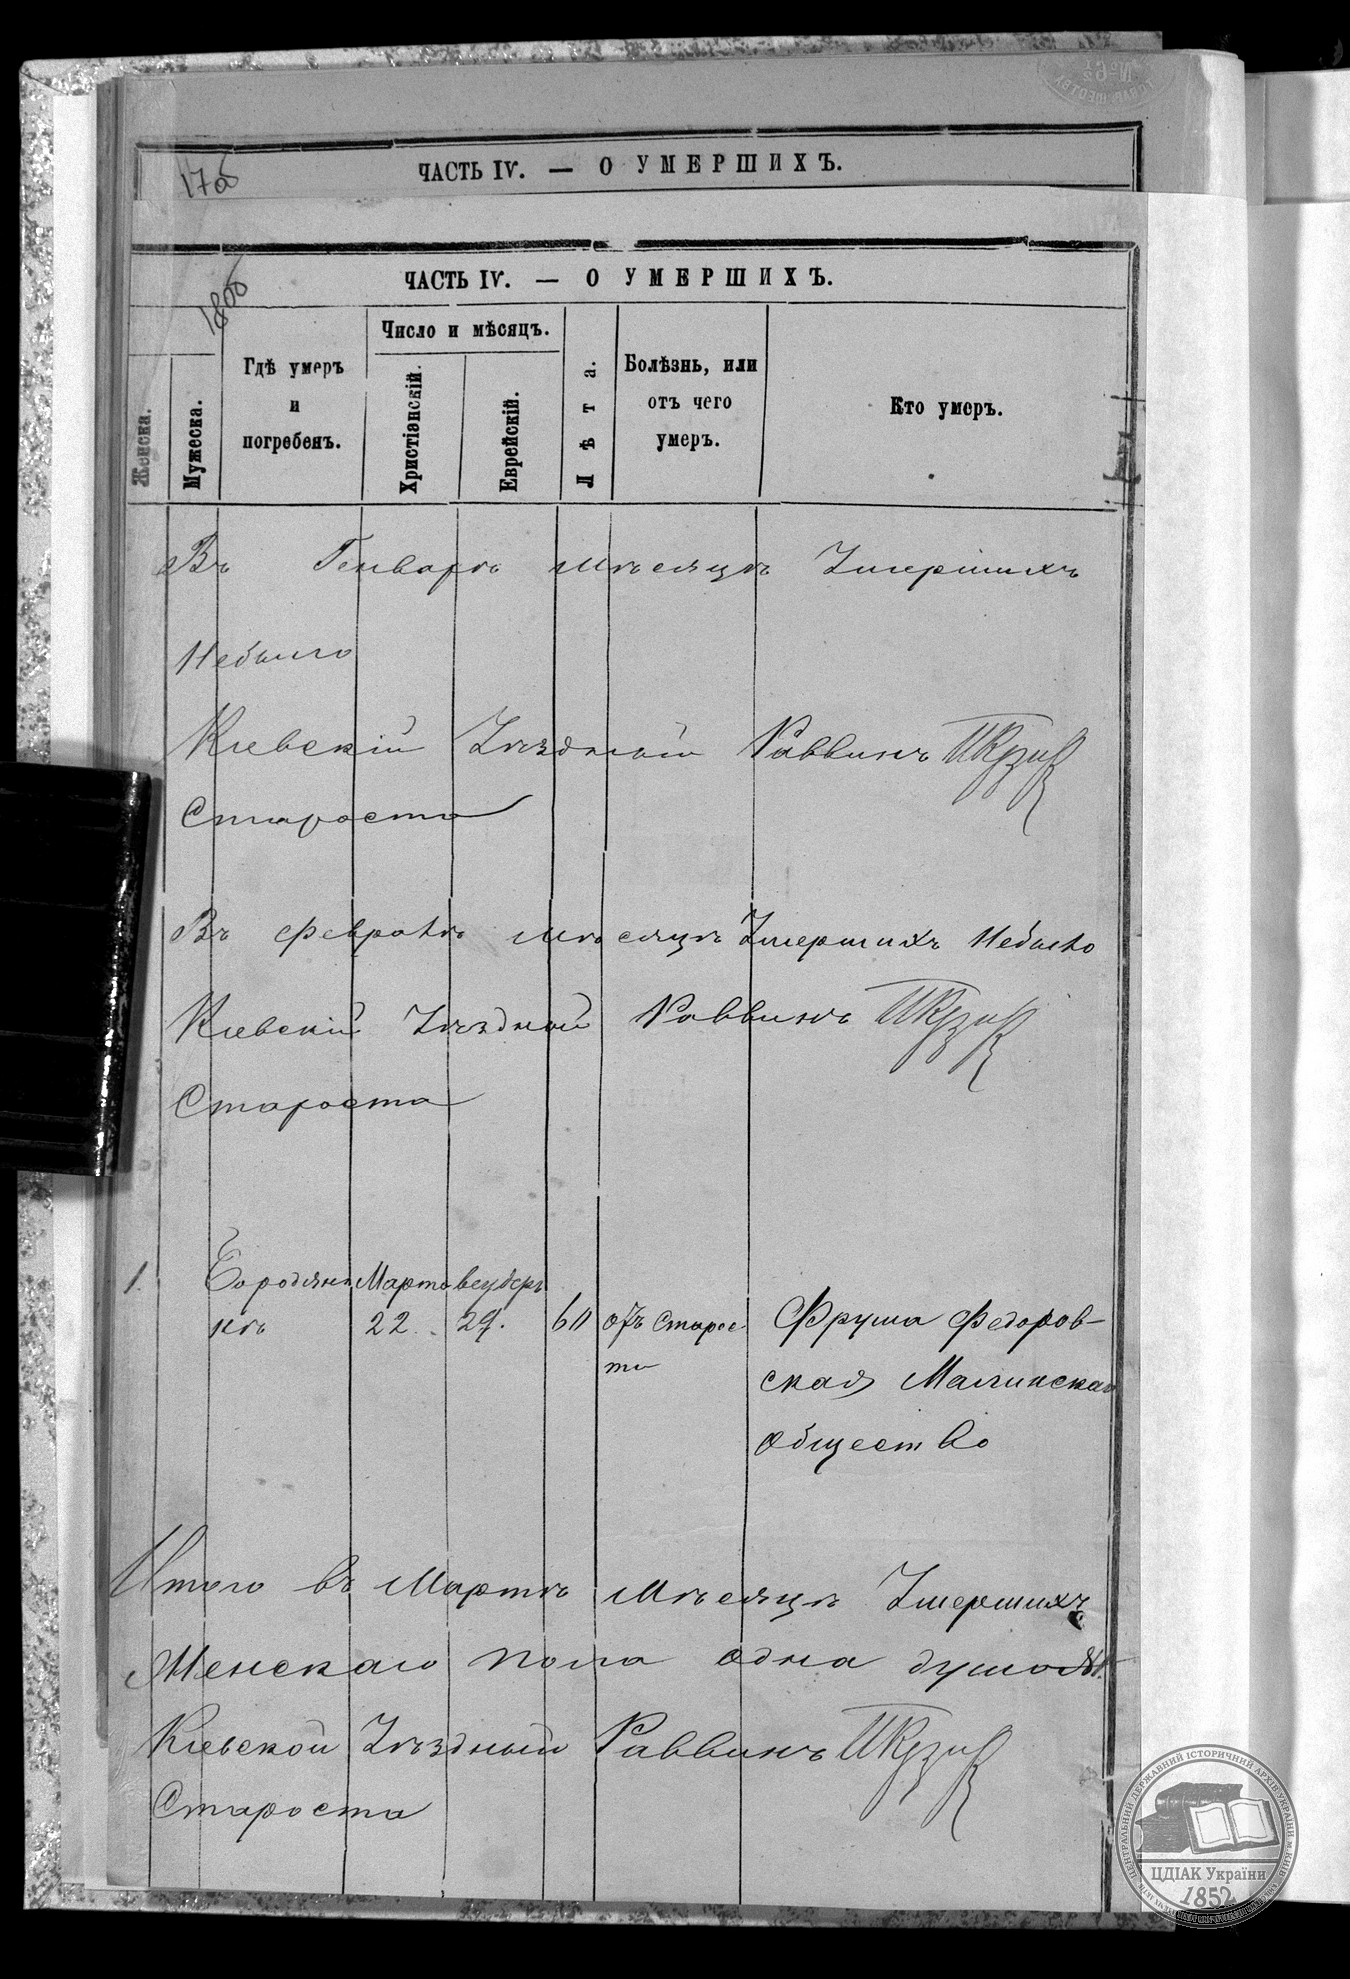 17об
ЧАСТЬ IV. — О УМЕРШИХЪ.
180б
ЧАСТЬ IV. — О УМЕРШИХЪ.
Женска.
Мужеска.
Гдѣ умеръ
и
погребенъ.
Число и мѣсяцъ.
Христіанскій.
Еврейскій.
Лѣта.
Болѣзнь, или
отъ чего
умеръ.
Кто умеръ.
Въ Генварѣ мѣсяцѣ Умершихъ
Небыло
Кіевскій Уѣздный Раввинъ
Староста
Въ Февралѣ мѣсяцѣ Умершихъ Небыло
Кіевскій Уѣздный Раввинъ
Староста
1. Бородянкѣ Марта 22. 29. 60 отъ старости Фрума Федоров-
ская Малинская
общество
Итого въ Мартѣ мѣсяцѣ Умершихъ
Женскаго пола одна душа
Кіевской Уѣздный Раввинъ
Староста
ЦЕНТРАЛЬНИЙ ДЕРЖАВНИЙ ІСТОРИЧНИЙ АРХІВ УКРАЇНИ, М. КИЇВ
ЦДІАК України
1852